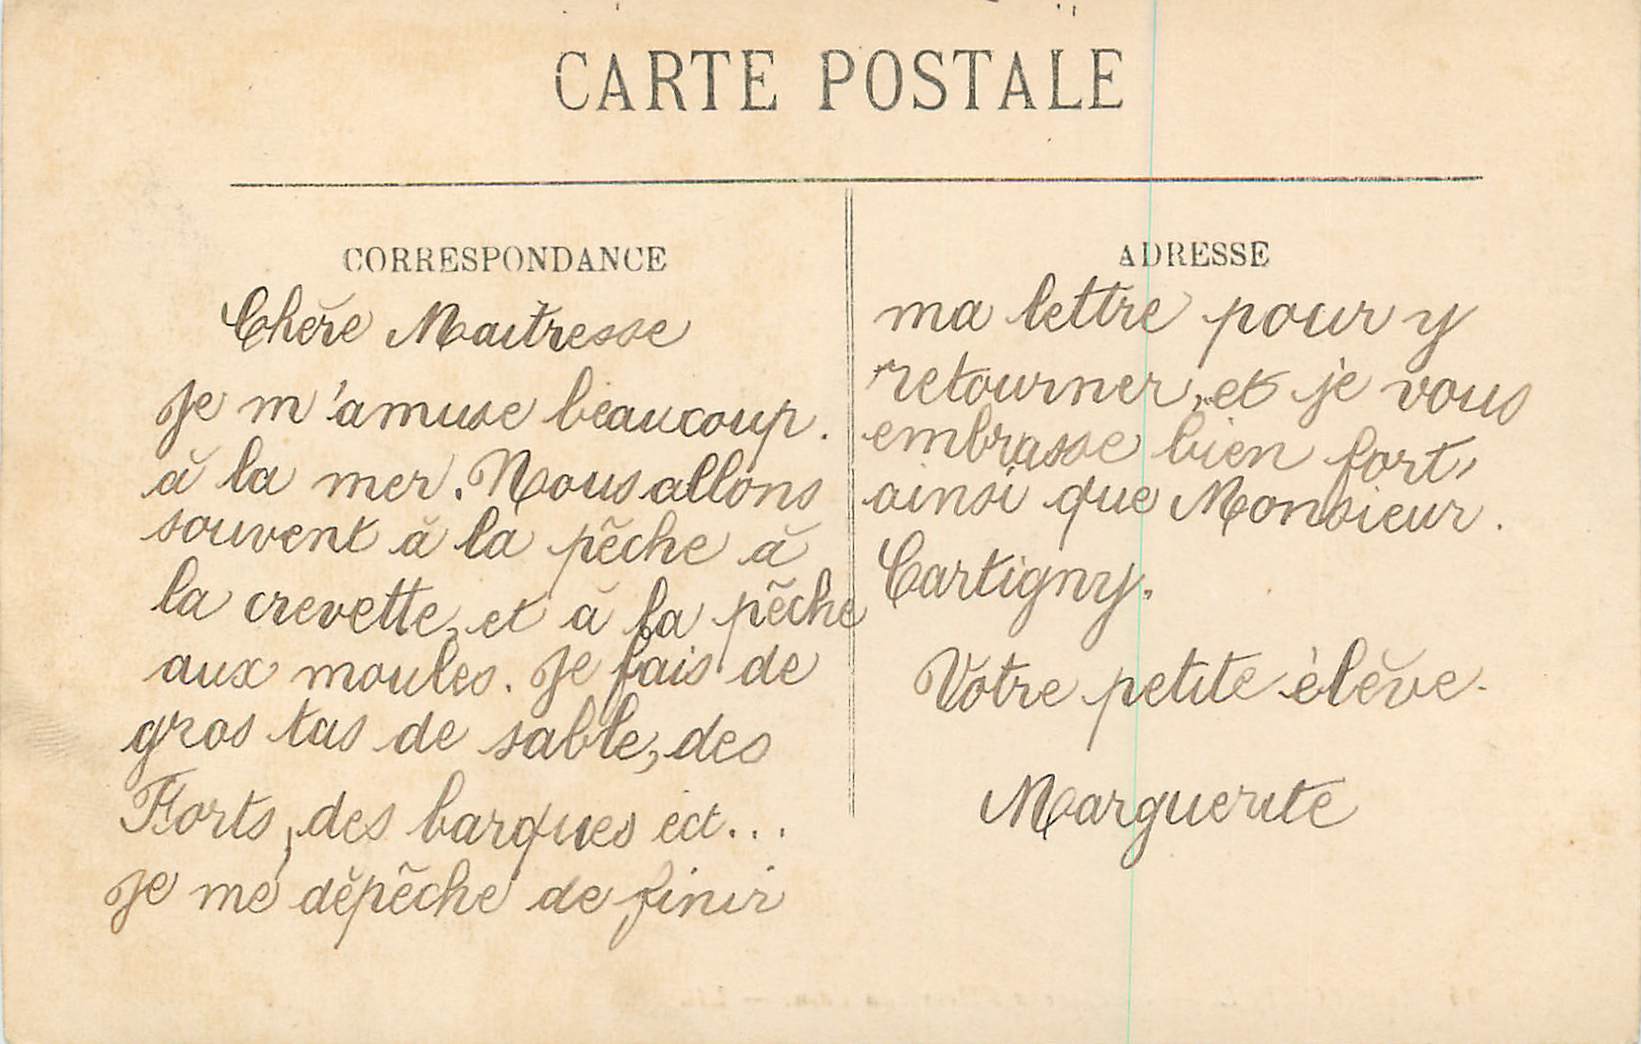 CARTE POSTALE
CORRESPONDANCE
Chère Maitresse
Je m'amuse beaucoup.
à la mer. Nous allons
souvent à la pêche à
la crevette, et à la pêche
aux moules. Je fais de
gros tas de sable, des
Forts, des barques ect...
Je me dépêche de finir
ADRESSE
ma lettre pour y
retourner, et je vous
embrasse bien fort,
ainsi que Monsieur.
Cartigny.
Votre petite élève.
Marguerite